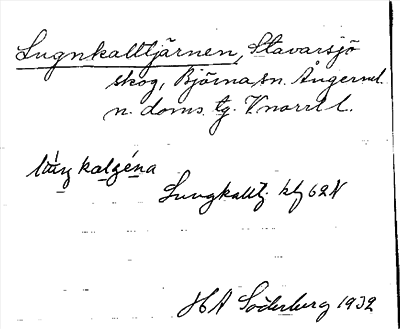 Lugnkalltjärnen, Stavarsjö
skog, Björna sn. Ångerml.
n. doms. tg. Vnorrl l.
kalgéna
Lungkalltj. kbl 62 N
H A Söderberg 1932